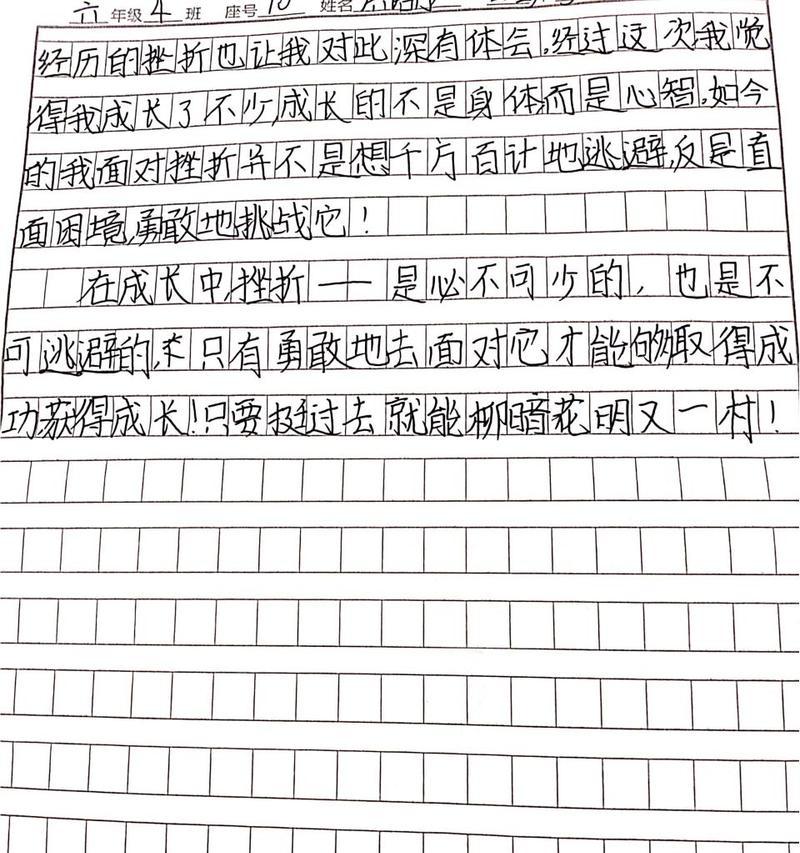 六年级 4 班 座号 10 姓名
经历的挫折也让我对此深有体会，经过这次我觉
得我成长了不少，成长的不是身体而是心智，如今
的我面对挫折并不是想千方百计地逃避，反是直
面困境，勇敢地挑战它！
在成长中，挫折——是必不可少的，也是不
可逃避的，只有勇敢地去面对它才能够取得成
功获得成长！只要挺过去就能柳暗花明又一村！